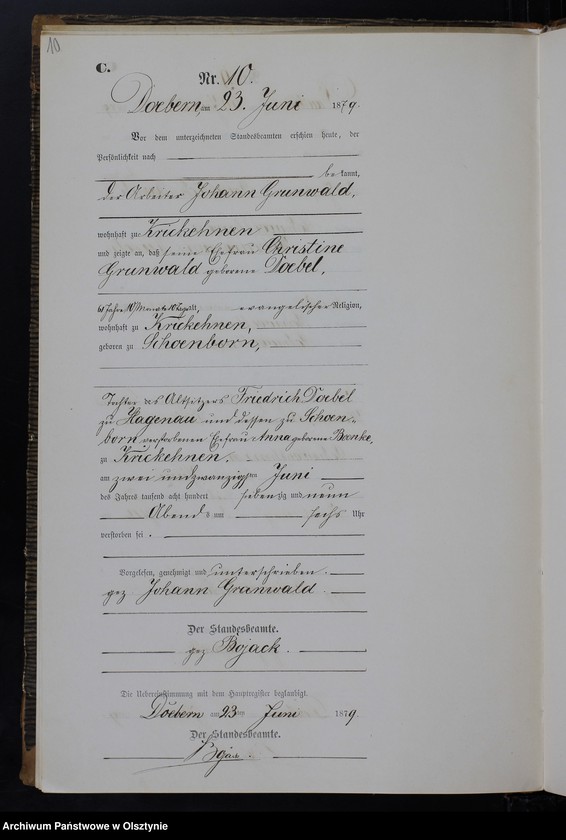 10
C.
Nr. 10.
Doebern, am 23. Juni 1879.
Vor dem unterzeichneten Standesbeamten erschien heute, der
Persönlichkeit nach
bekannt,
der Arbeiter Johann Grunwald,
wohnhaft zu Krickehnen
und zeigte an, daß seine Ehefrau Christine
Grunwald geborene Doebel,
61 Jahre 10 Monate 10 Tage alt, evangelischer Religion,
wohnhaft zu Krickehnen,
geboren zu Schoenborn,
Tochter des Altsitzers Friedrich Doebel
zu Hagenau und dessen zu Schoen-
born verstorbenen Ehefrau Anna geborene Banke,
zu Krickehnen.
am zwei und zwanzigsten Juni
des Jahres tausend acht hundert siebenzig und neun
Abends um sechs Uhr
verstorben sei.
Vorgelesen, genehmigt und unterschrieben.
gez Johann Grunwald
Der Standesbeamte.
gez Bojack.
Die Uebereinstimmung mit dem Hauptregister beglaubigt.
Döebern am 23ten Juni 1879.
Der Standesbeamte.
Archiwum Państwowe w Olsztynie